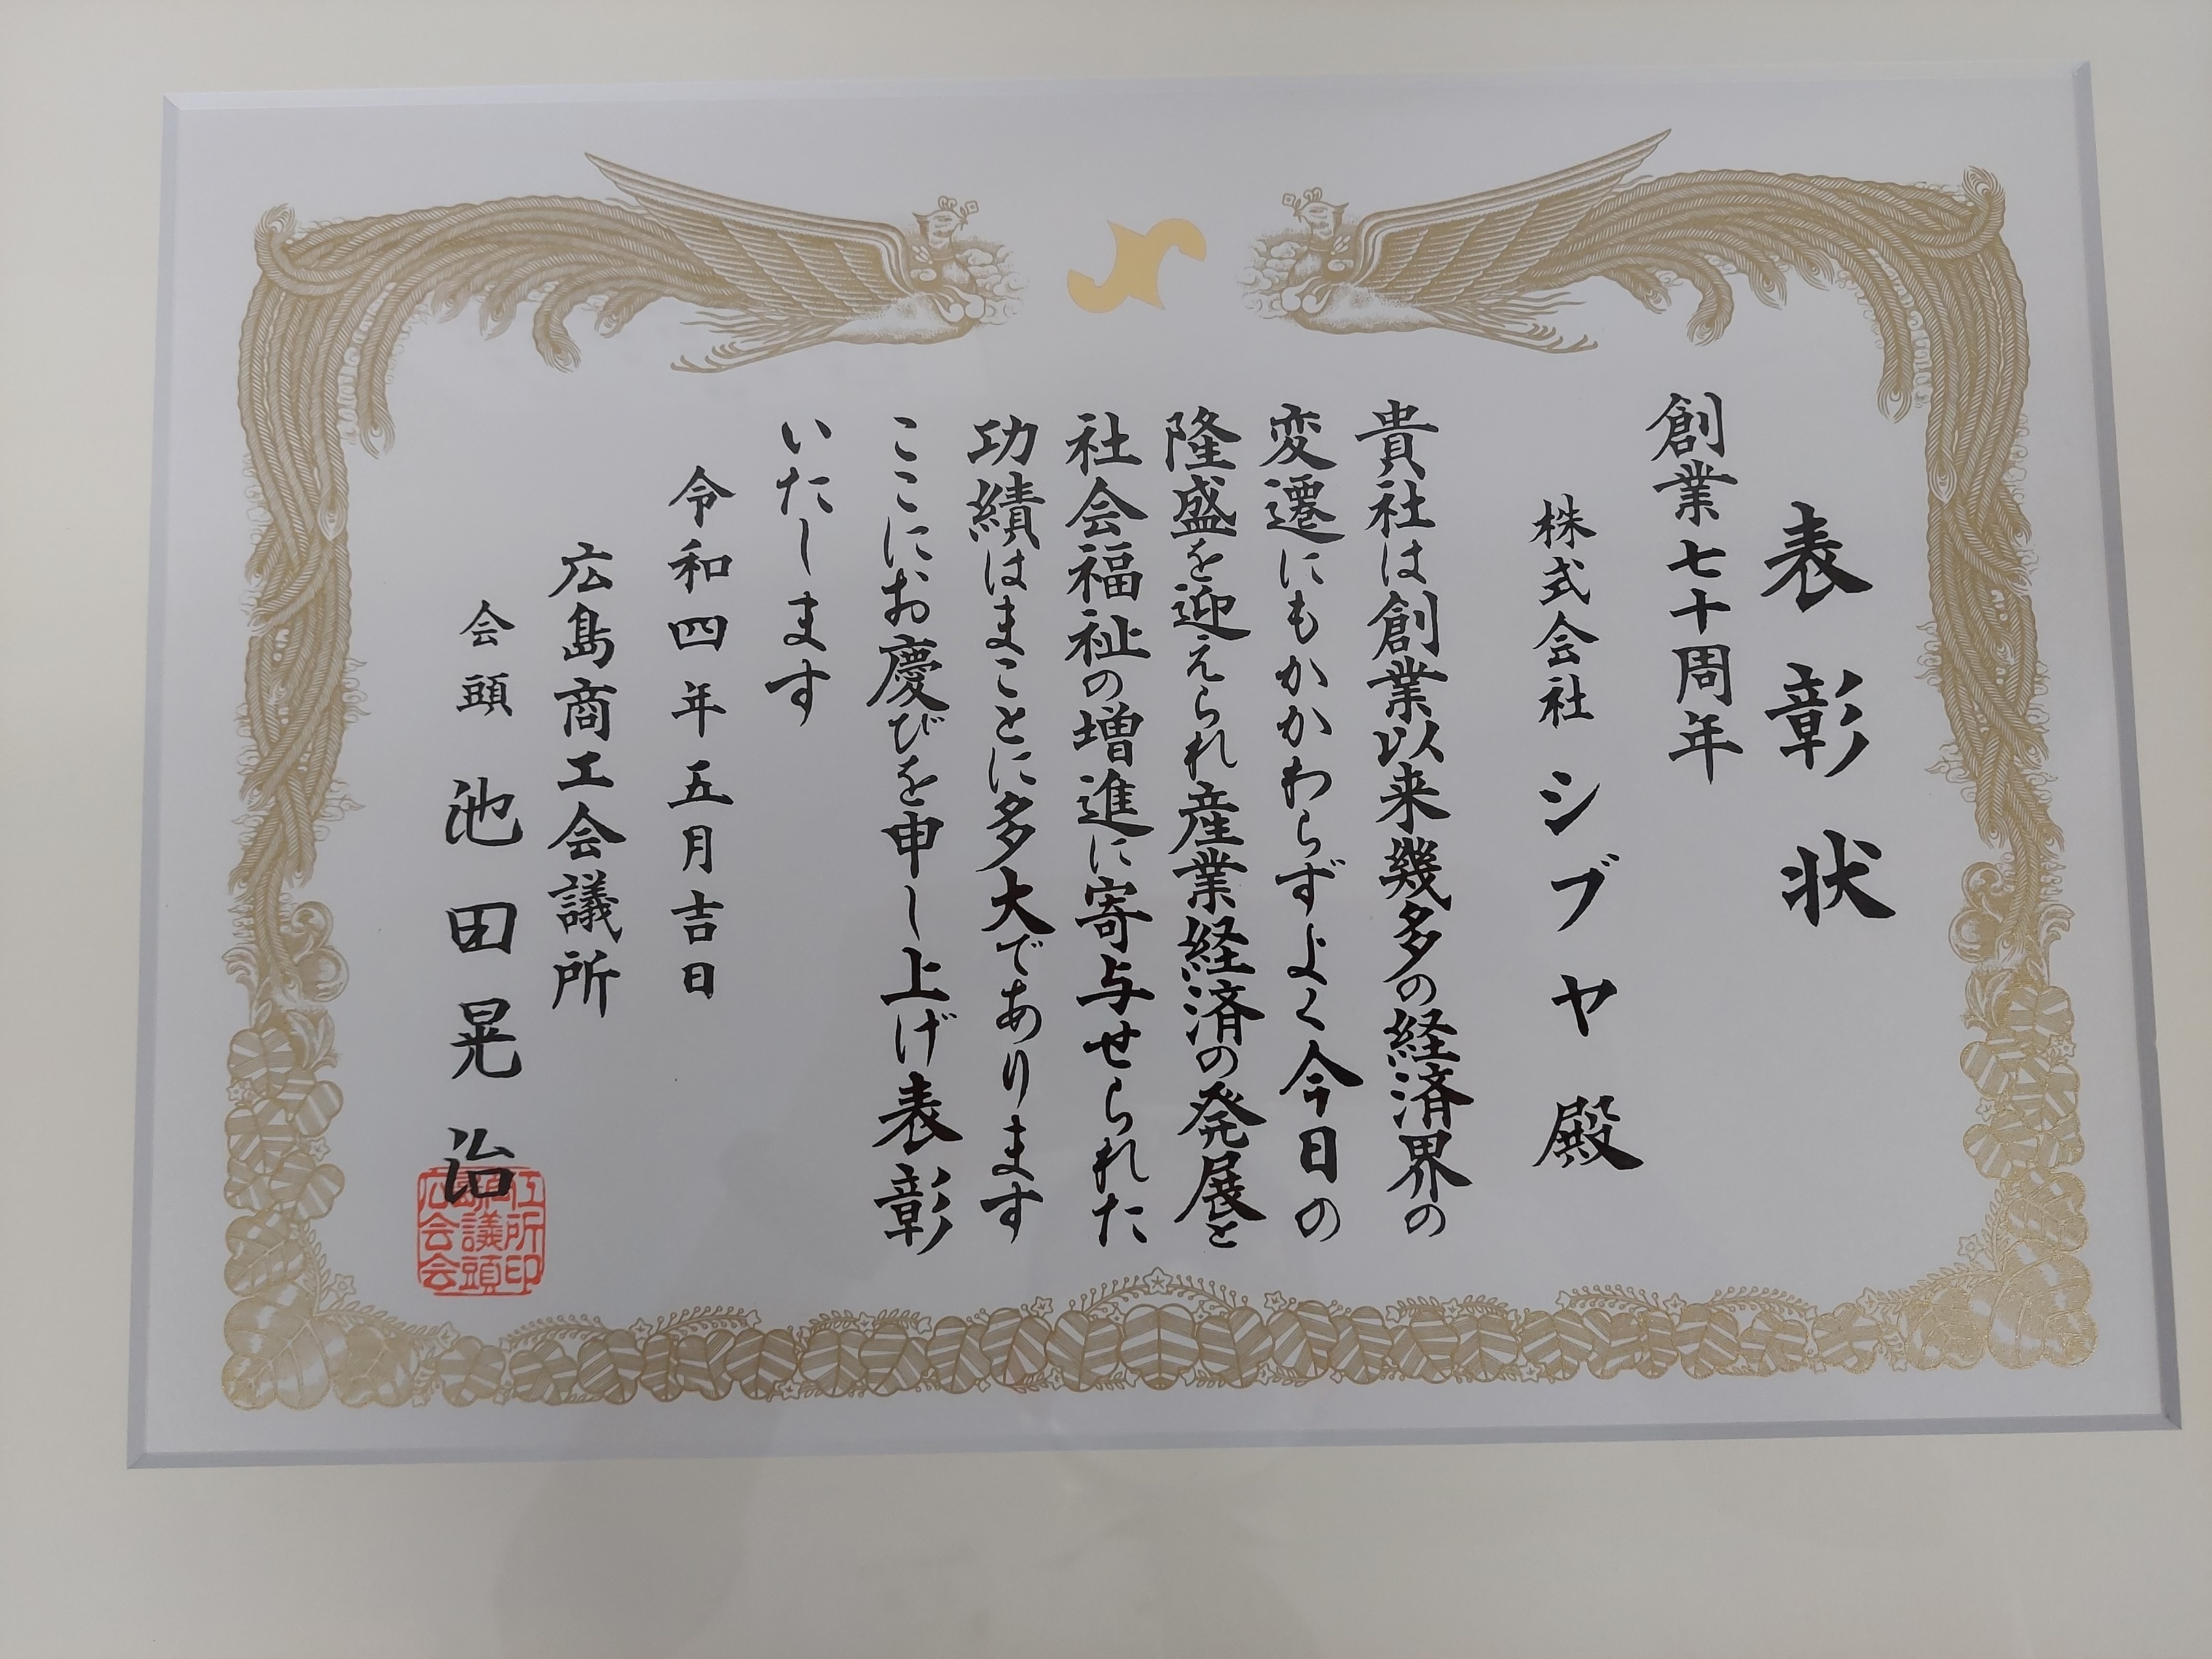 表彰状
創業七十周年
株式会社シブヤ殿
貴社は創業以来幾多の経済界の
変遷にもかかわらずよく今日の
隆盛を迎えられ産業経済の発展と
社会福祉の増進に寄与せられた
功績はまことに多大であります
ここにお慶びを申し上げ表彰
いたします
令和四年五月吉日
広島商工会議所
会頭 池田晃治